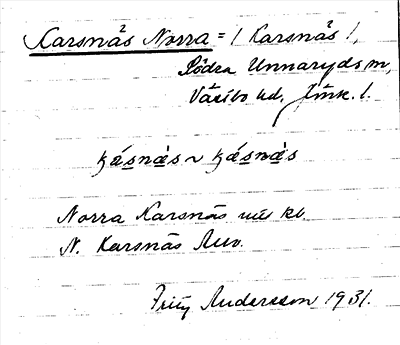 Karsnäs Norra = / Karsnäs /,
Södra Unnaryds sn,
Västbo hd, Jönk. l.
kásnàs ~ kásnàs
Norra Karsnäs kb.
N. Karsnäs
Fritz Andersson 1931.